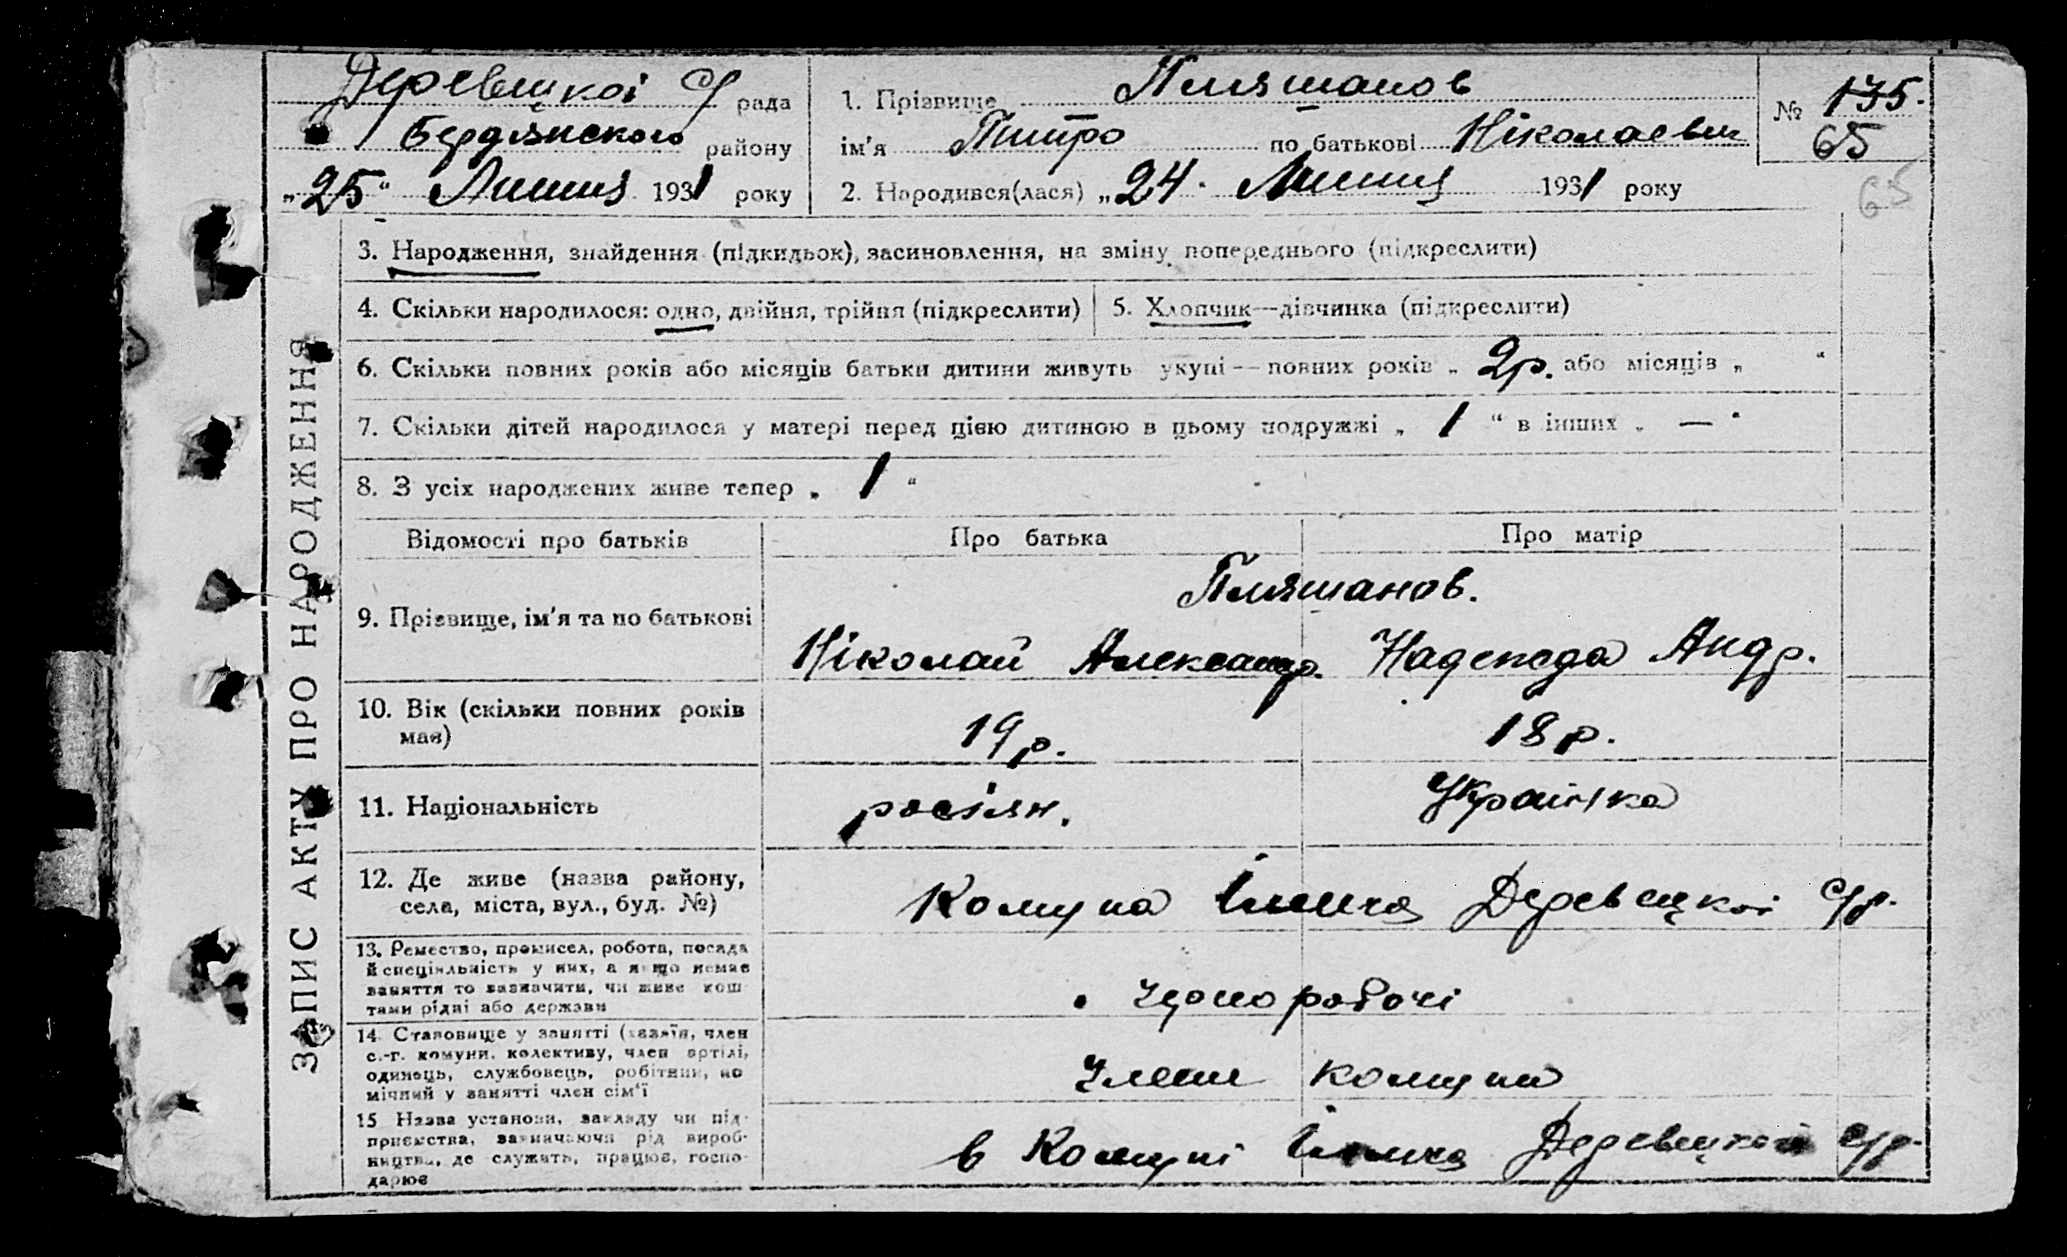 Деревецкої С/ рада
Бердянского району
„25“ Липня 1931 року
1. Прізвище Пляшанов
ім'я Пітро по батькові Ніколаевич
2. Народився(лася) „24. Липня 1931 року
№ 135.
65
65
ЗАПИС АКТУ ПРО НАРОДЖЕННЯ
3. Народження, знайдення (підкидьок), засиновлення, на зміну попереднього (підкреслити)
4. Скільки народилося: одно, двійня, трійня (підкреслити)
5. Хлопчик—дівчинка (підкреслити)
6. Скільки повних років або місяців батьки дитини живуть укупі—повних років „ 2р. або місяців „ “
7. Скільки дітей народилося у матері перед цією дитиною в цьому подружжі „ 1 “ в інших „ — “
8. З усіх народжених живе тепер „ 1 “
Відомості про батьків Про батька Про матір
9. Прізвище, ім'я та по батькові
Пляшанов.
Ніколай Александр. Надежда Андр.
10. Вік (скільки повних років має)
19 р. 18 р.
11. Національність
росіян. Українка
12. Де живе (назва району,
села, міста, вул., буд. №)
Комуна Ілліча Деревецкої С/р.
13. Ремество, промисел, робота, посада
й спеціяльність у них, а якщо немає
заняття то зазначити, чи живе кош
тами рідні або держави
чорноробочі
14. Становище у занятті (хазяїн, член
с.-г. комуни, колективу, член артілі,
одинець, службовець, робітник, по
мічний у занятті член сім'ї
Члени комуни
15 Назва установи, закладу чи під-
приємства, зазначаючи рід вироб-
ництва, де служить, працює, госпо-
дарює
в Комуні Ілліча Деревецкої С/р.